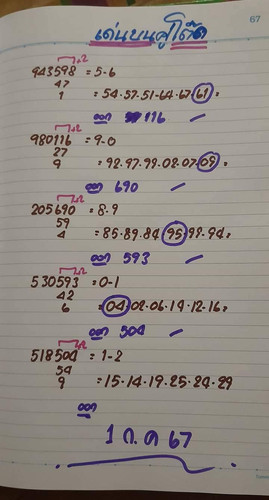 67
เด่นบนคู่โต๊ด
+2
943598 = 5-6
47
1 = 54-57-51-64-67-61=
ออก 116 ✓
+2
980116 = 9-0
27
9 = 92-97-99-02-07-09=
ออก 690 ✓
+2
205690 = 8-9
59
4 = 85-89-84-95-99-94=
ออก 593 ✓
+2
530593 = 0-1
42
6 = 04-02-06-14-12-16=
ออก 504 ✓
+2
518504 = 1-2
54
9 = 15-14-19-25-24-29
ออก
1 ก.ค 67